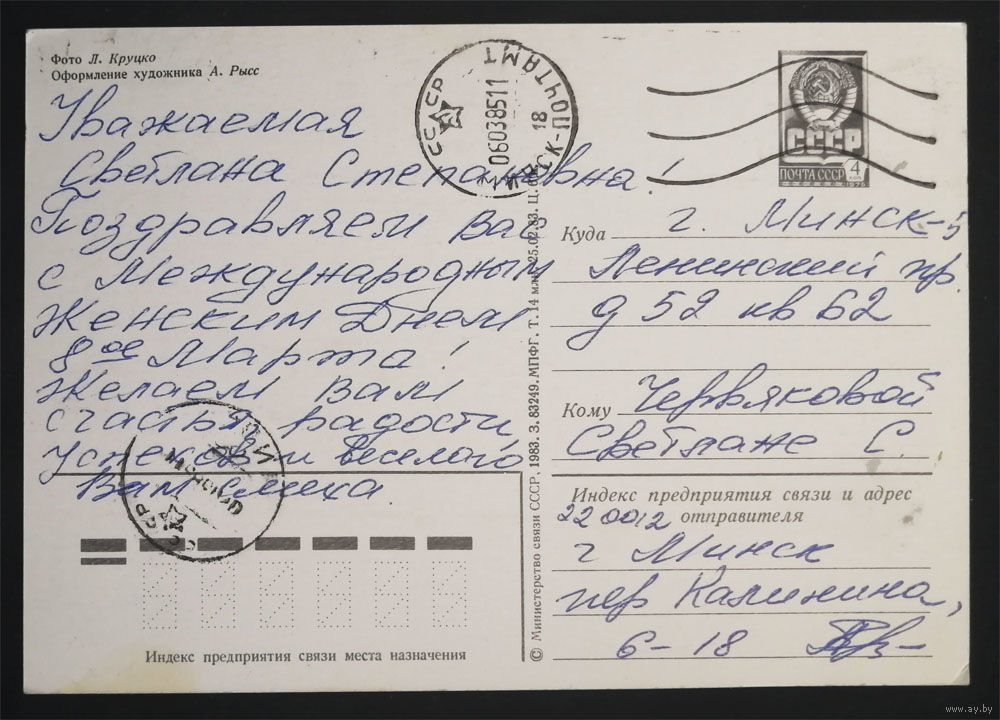 Фото Л. Круцко
Оформление художника А. Рысс
Уважаемая
Светлана Степановна!
Поздравляем Вас
с Международным
Женским Днем
8ое Марта!
Желаем Вам
счастья, радости
успехов и веселого
Вам смеха
Индекс предприятия связи места назначения
© Министерство связи СССР. 1983. З. 83249. МПФГ. Т. 14 млн. 25.02.83. Ц.
СССР
06038511
18
ПОЧТАМТ
СССР
СССР
ПОЧТА СССР 4 коп
1976
Куда г. Минск-5
Ленинский пр.
д 52 кв 62
Кому Червяковой
Светлане С.
Индекс предприятия связи и адрес
220012 отправителя
г Минск
пер Калинина,
6-18
www.ay.by